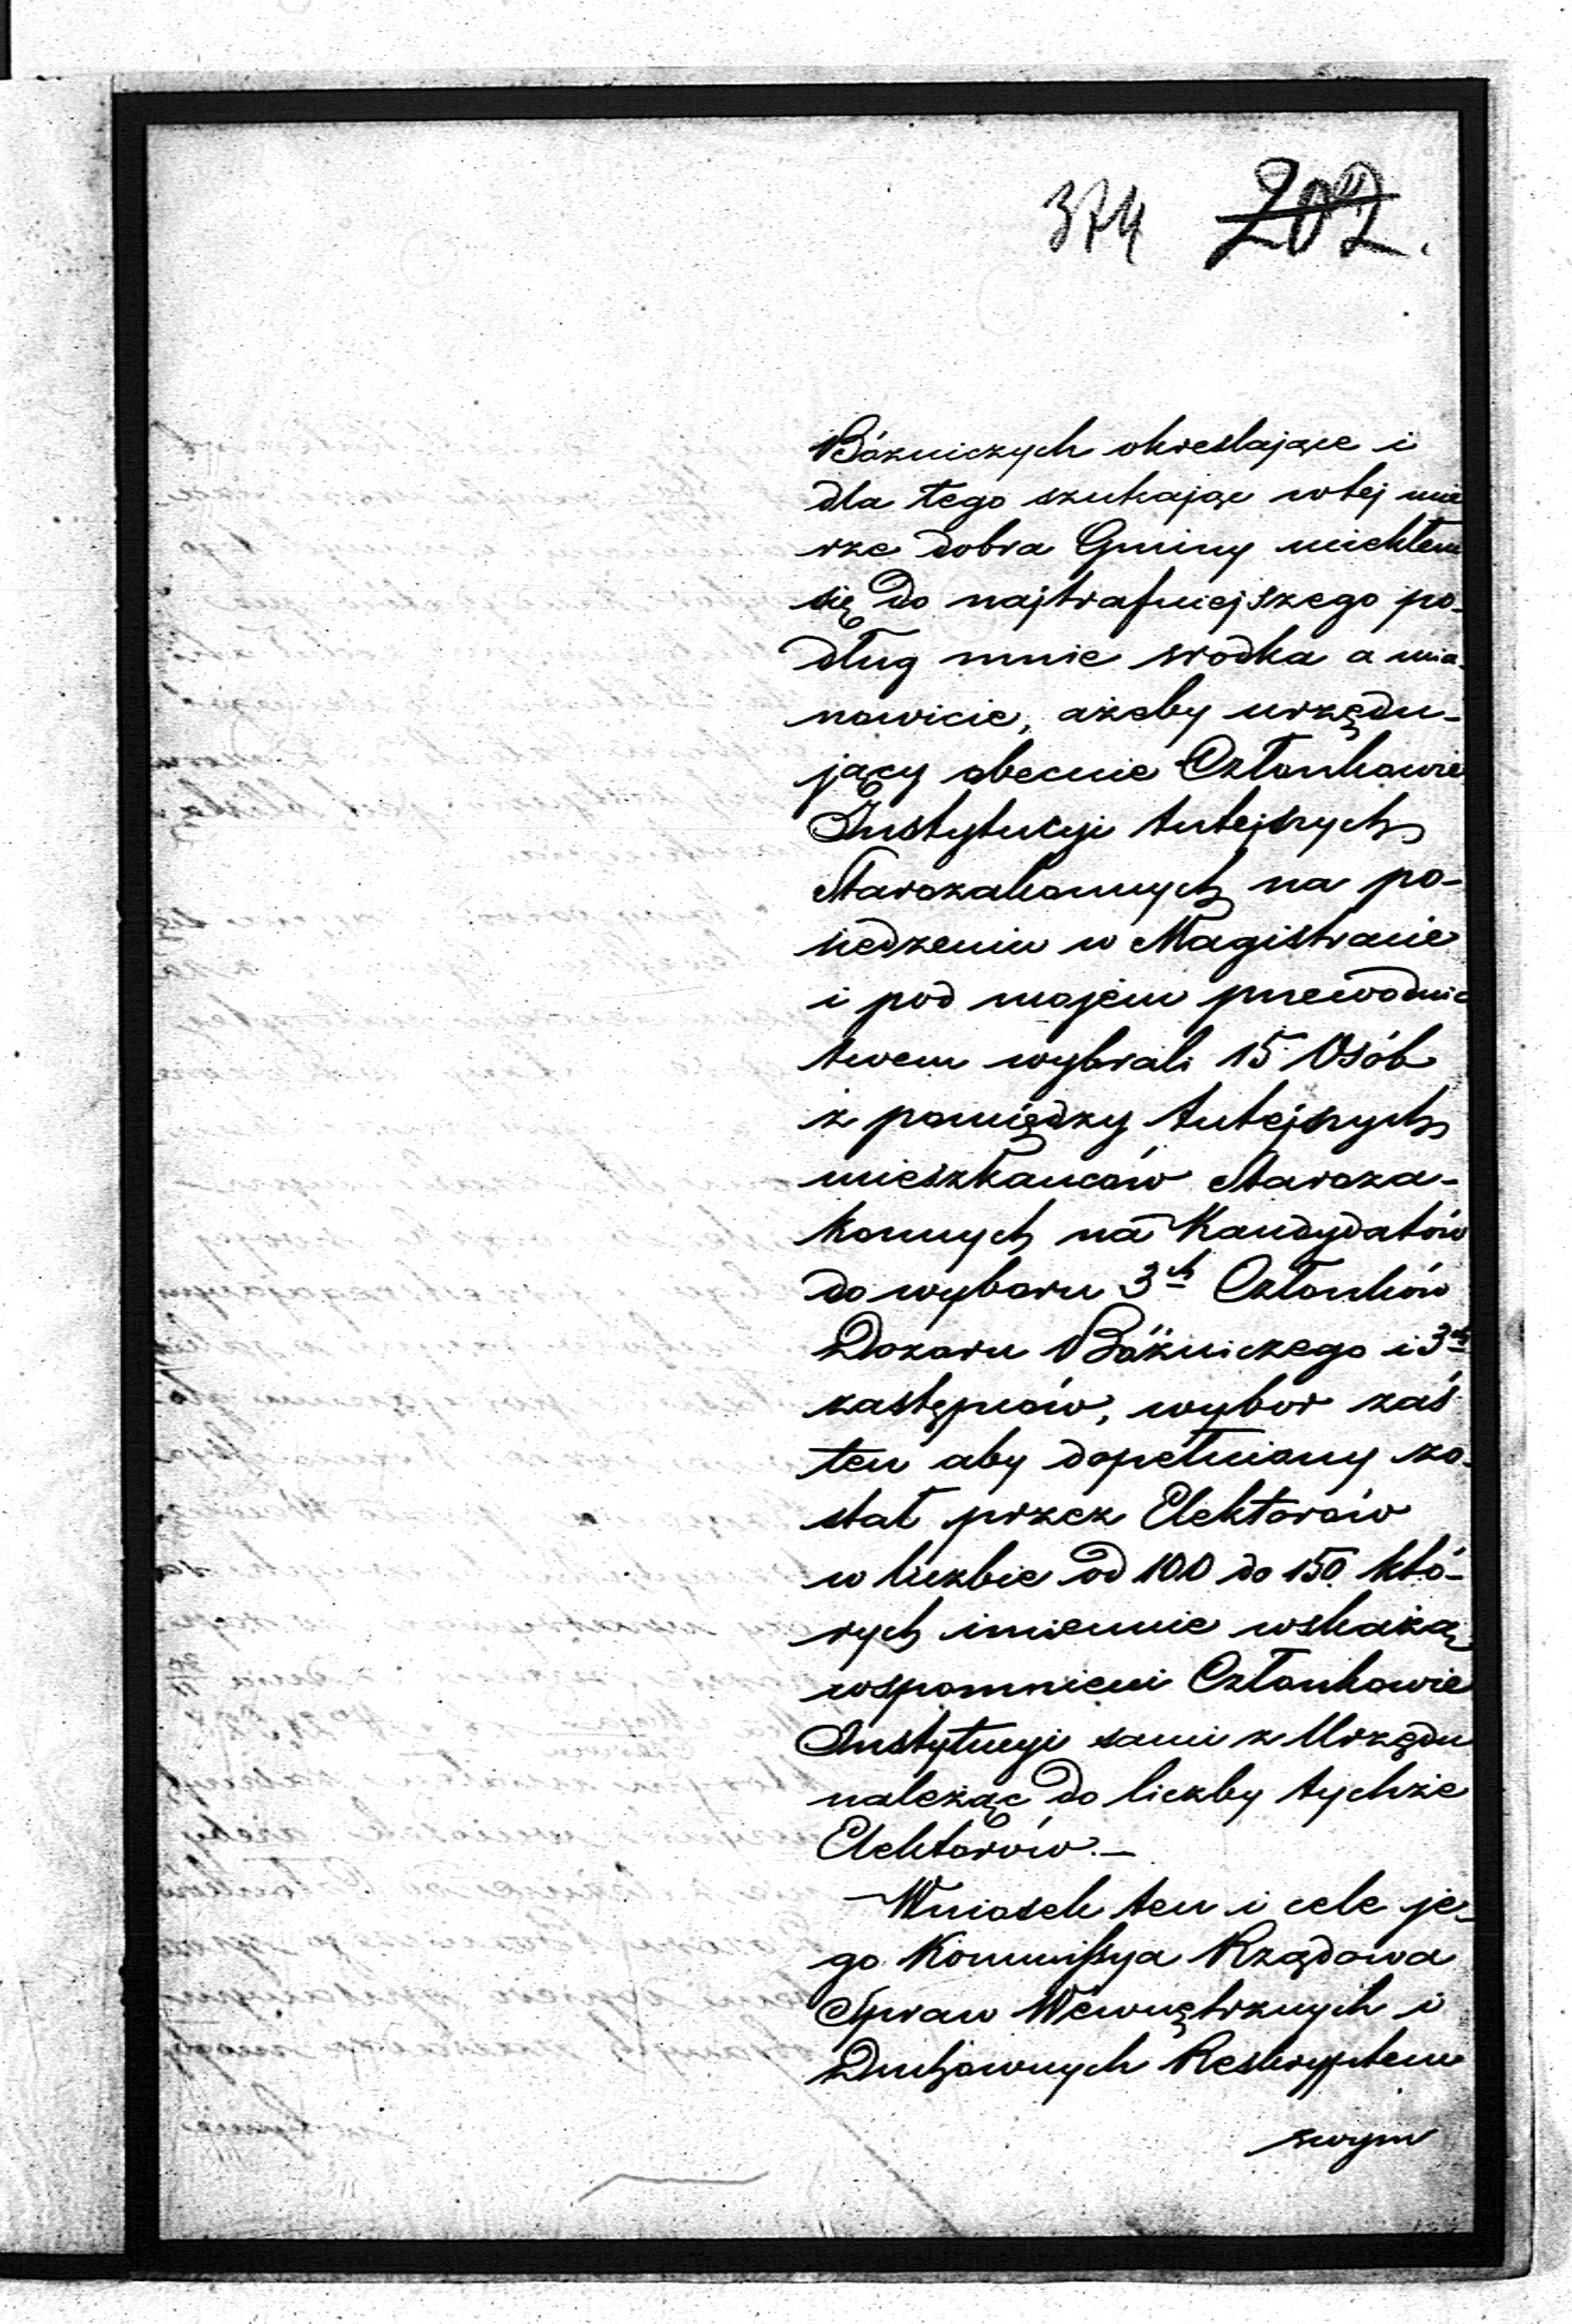 374 202.
Bóżniczych okreslające i
dla tego szukając wtej mie
rze dobra Gminy uciekłem
się do najtrafniejszego po-
dług mnie srodka a mia-
nowicie, ażeby urzędu-
jący obecnie Członkowie
Instytucyi tutejszych
Starozakonnych na po-
siedzeniu w Magistracie
i pod mojem przewodnic
twem wybrali 15 Osób
z pomiędzy tutejszych
mieszkańców Staroza-
konnych na Kandydatów
do wyboru 3ch Członków
Dozoru Bóżniczego i 3ch
zastępców, wybor zaś
ten aby dopełniony zo-
stał przez Elektorów
w liczbie od 100 do 150 któ-
rych imiennie wskażą
wspomnieni Członkowie
Instytucyi sami z Urzędu
należąc do liczby tychże
Elektorów.—
Wniosek ten i cele je-
go Kommissya Rządowa
Spraw Wewnętrznych i
Duchownych Reskryptem
swym